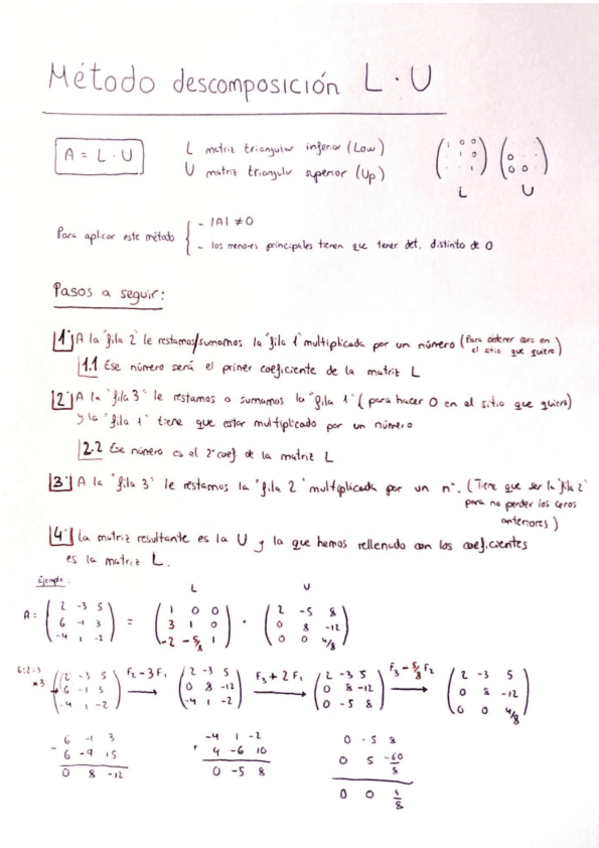 Método descomposición L · U
A = L · U
L matriz triangular inferior (Low)
U matriz triangular superior (Up)
L U
Para aplicar este método { - |A| ≠ 0
- los menores principales tienen que tener det. distinto de 0
Pasos a seguir:
1º A la "fila 2" le restamos/sumamos la "fila 1" multiplicada por un número (Para obtener cero en el sitio que quiero)
1.1 Ese número será el primer coeficiente de la matriz L
2º A la "fila 3" le restamos o sumamos la "fila 1" (para hacer 0 en el sitio que quiero)
y la "fila 1" tiene que estar multiplicado por un número
2.2 Ese número es el 2º coef. de la matriz L
3º A la "fila 3" le restamos la "fila 2" multiplicada por un nº. (Tiene que ser la "fila 2"
para no perder los ceros
anteriores)
4º La matriz resultante es la U y la que hemos rellenado con los coeficientes
es la matriz L.
Ejemplo:
L U
A = ( 2 -3 5 ) = ( 1 0 0 ) · ( 2 -5 8 )
( 6 -1 3 ) ( 3 1 0 ) ( 0 8 -12 )
( -4 1 -2 ) ( -2 -5/8 1 ) ( 0 0 4/8 )
6:2=3 ( 2 -3 5 ) F2 - 3F1 ( 2 -3 5 ) F3 + 2F1 ( 2 -3 5 ) F3 - 5/8 F2 ( 2 -3 5 )
×3 ( 6 -1 3 ) → ( 0 8 -12 ) → ( 0 8 -12 ) → ( 0 8 -12 )
( -4 1 -2 ) ( -4 1 -2 ) ( 0 -5 8 ) ( 0 0 4/8 )
6 -1 3 -4 1 -2 0 -5 8
- 6 -9 15 + 4 -6 10 0 5 -60/8
0 8 -12 0 -5 8 0 0 4/8